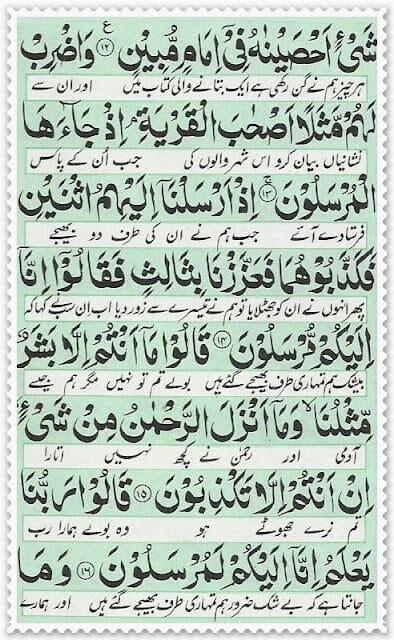 شَیْءٍ اَحْصَیْنٰهُ فِیْۤ اِمَامٍ مُّبِیْنٍ ﴿۱۲﴾ ع وَاضْرِبْ
ہر چیز ہم نے گن رکھی ہے ایک بتانے والی کتاب میں اور ان سے
لَهُمْ مَّثَلًا اَصْحٰبَ الْقَرْیَةِ ۘ اِذْ جَآءَهَا
نشانیاں بیان کرو اس شہر والوں کی جب اُن کے پاس
الْمُرْسَلُوْنَ ﴿۱۳﴾ۚ اِذْ اَرْسَلْنَاۤ اِلَیْهِمُ اثْنَیْنِ
فرستادے آئے جب ہم نے ان کی طرف دو بھیجے
فَكَذَّبُوْهُمَا فَعَزَّزْنَا بِثَالِثٍ فَقَالُوْۤا اِنَّاۤ
پھر انہوں نے ان کو جھٹلایا تو ہم نے تیسرے سے زور دیا اب ان سب نے کہا کہ
اِلَیْكُمْ مُّرْسَلُوْنَ ﴿۱۴﴾ قَالُوْا مَاۤ اَنْتُمْ اِلَّا بَشَرٌ
بیشک ہم تمہاری طرف بھیجے گئے ہیں بولے تم تو نہیں مگر ہم جیسے
مِّثْلُنَا ۙ وَمَاۤ اَنْزَلَ الرَّحْمٰنُ مِنْ شَیْءٍ ۙ
آدمی اور رحمٰن نے کچھ نہیں اتارا
اِنْ اَنْتُمْ اِلَّا تَكْذِبُوْنَ ﴿۱۵﴾ قَالُوْا رَبُّنَا
تم نرے جھوٹے ہو وہ بولے ہمارا رب
یَعْلَمُ اِنَّاۤ اِلَیْكُمْ لَمُرْسَلُوْنَ ﴿۱۶﴾ وَمَا
جانتا ہے کہ بے شک ضرور ہم تمہاری طرف بھیجے گئے ہیں اور ہمارے